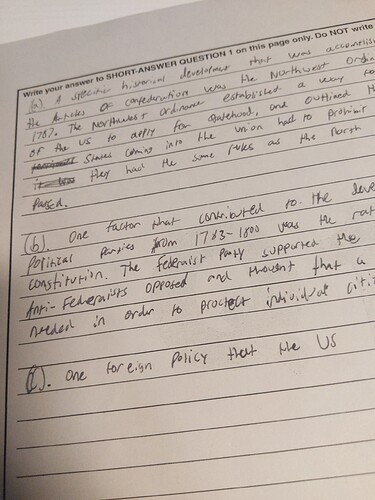 Write your answer to SHORT-ANSWER QUESTION 1 on this page only. Do NOT write
(a) A specific historical development that was accomplis
the Articles of Confederation was the Northwest Ordin
1787. The Northwest Ordinance established a way for
of the US to apply for statehood, and outlined th
States coming into the union had to prohibit
they had the same rules as the North
passed.
(b). One factor that contributed to the deve
Political parties from 1783-1800 was the rat
Constitution. The Federalist Party supported the
Anti-Federalists opposed and thought that a
needed in order to protect individual citi
(c). One foreign policy that the US